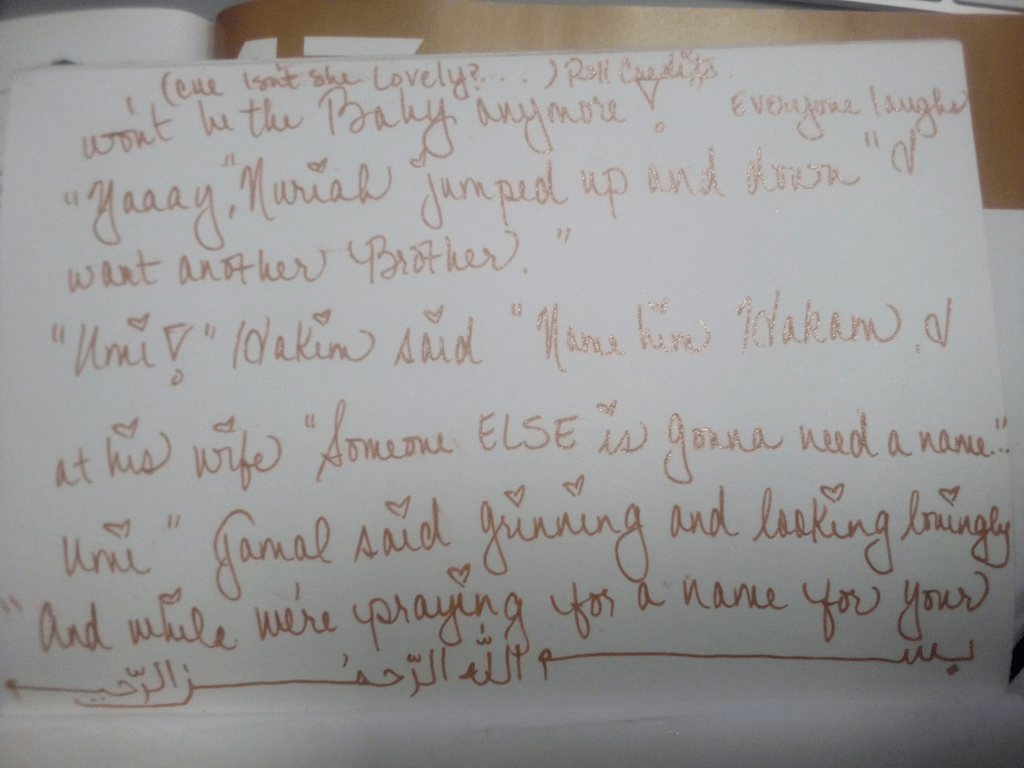 بسم الله الرّحمن الرّحيم
"And while we're praying for a name for your
Umi" Jamal said grinning and looking lovingly
at his wife "Someone ELSE is gonna need a name."
"Umi!" Hakim said "Name him Hakam. I
want another Brother."
"Yaaay," Nuriah jumped up and down "I
won't be the Baby anymore! Everyone laughs
(cue Isn't she Lovely?...) Roll Credits.